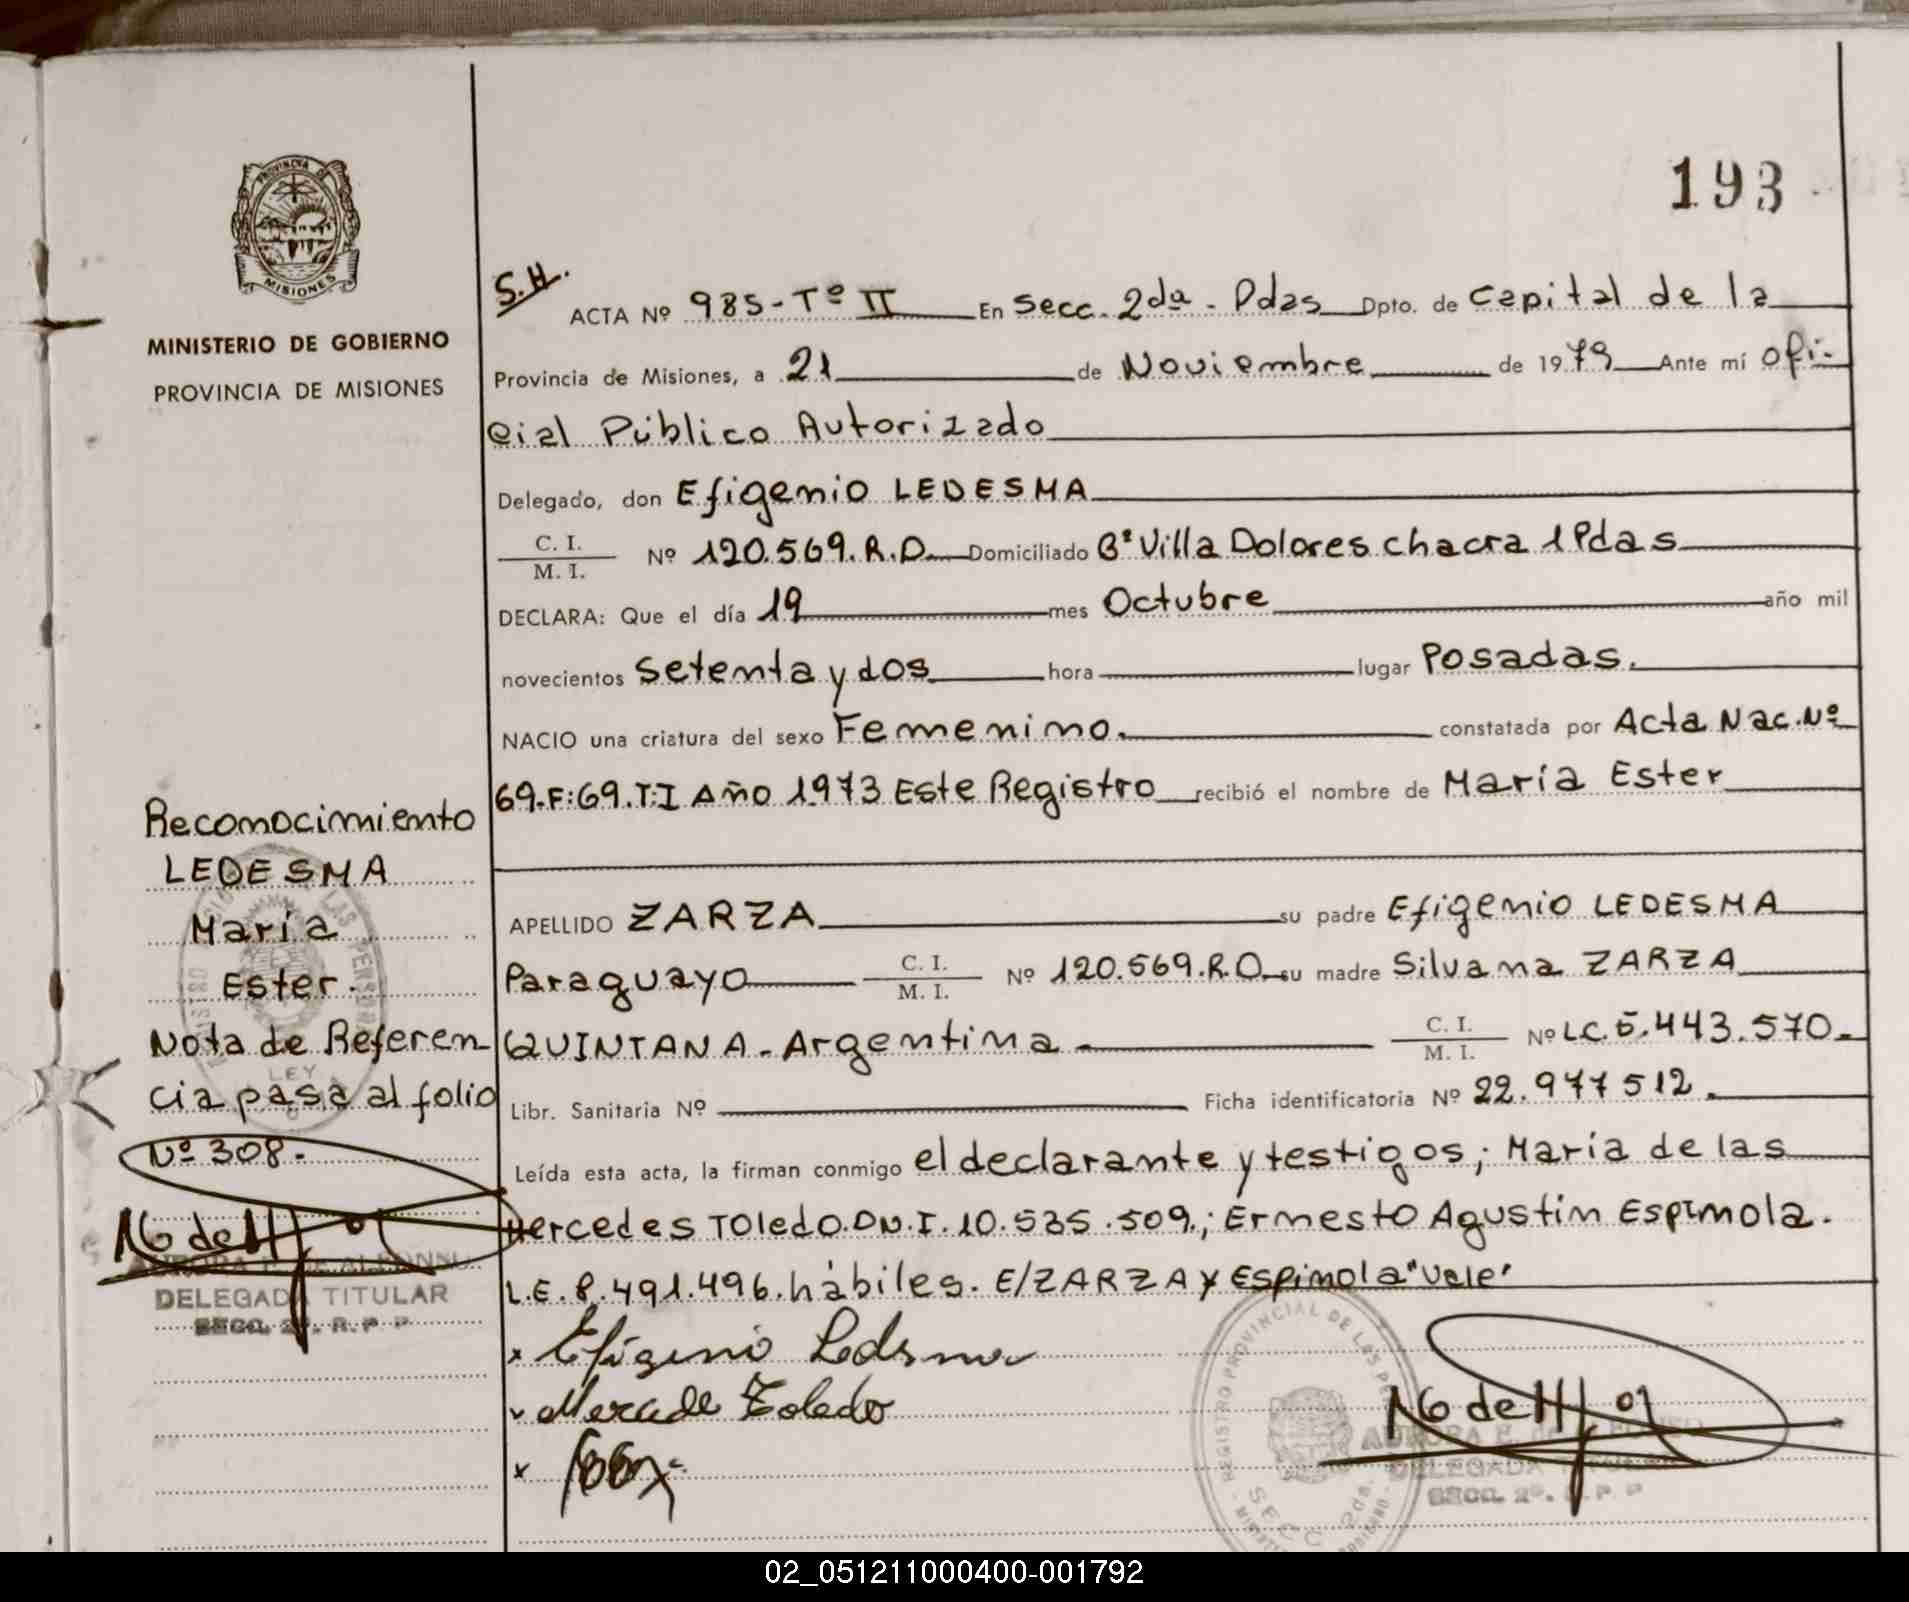 193
PROVINCIA DE
MISIONES
MINISTERIO DE GOBIERNO
PROVINCIA DE MISIONES
S.H.
ACTA Nº 985-Tº II En Secc. 2da - Pdas Dpto. de Capital de la
Provincia de Misiones, a 21 de Noviembre de 1979 Ante mí ofi-
cial Público Autorizado
Delegado, don Efigenio LEDESMA
C. I.
M. I. Nº 120.569.R.D. Domiciliado Bº Villa Dolores chacra 1 Pdas
DECLARA: Que el día 19 mes Octubre año mil
novecientos Setenta y dos hora lugar Posadas.
NACIO una criatura del sexo Femenino. constatada por Acta Nac. Nº
69.F:69.T:I Año 1973 Este Registro recibió el nombre de María Ester
APELLIDO ZARZA su padre Efigenio LEDESMA
Paraguayo C. I. M. I. Nº 120.569.R.D. su madre Silvana ZARZA
QUINTANA - Argentina C. I. M. I. Nº LC.5.443.570.
Libr. Sanitaria Nº Ficha identificatoria Nº 22.977512.
Leída esta acta, la firman conmigo el declarante y testigos; María de las
Mercedes Toledo.DN.I.10.535.509.; Ernesto Agustín Espínola.
L.E.8.491.496.hábiles. E/ZARZA y Espínola "Vale"
Efigenio Ledsma
Mercede Toledo
Reconocimiento
LEDESMA
María
Ester.
Nota de Referen-
cia pasa al folio
Nº 308.
LEY
DELEGADA TITULAR
SECC. 2ª. R.P P
REGISTRO PROVINCIAL DE LAS
AURORA E. de
DELEGADA TITULAR
SECC. 2ª. R.P P
02_051211000400-001792